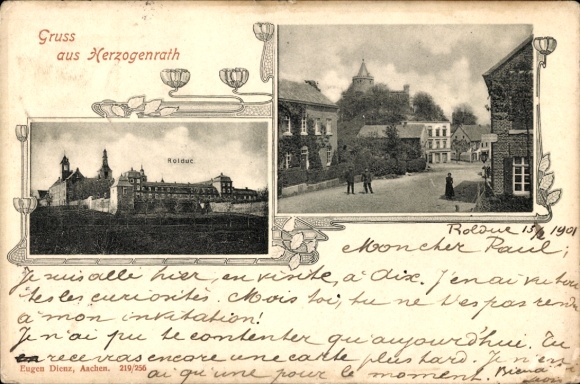 Gruss
aus Herzogenrath
Rolduc.
Rolduc 15/6 1901
Mon cher Paul;
Je suis allé hier, en visite, à Aix. J'en ai vu tou
tes les curiosités. Mais toi, tu ne t'es pas rendu
à mon invitation!
Je n'ai pu te contenter qu'aujourd'hui. Tu
en recevras encore une carte plus tard. Je n'en
ai qu'une pour le moment.
Eugen Dienz, Aachen. 219/256